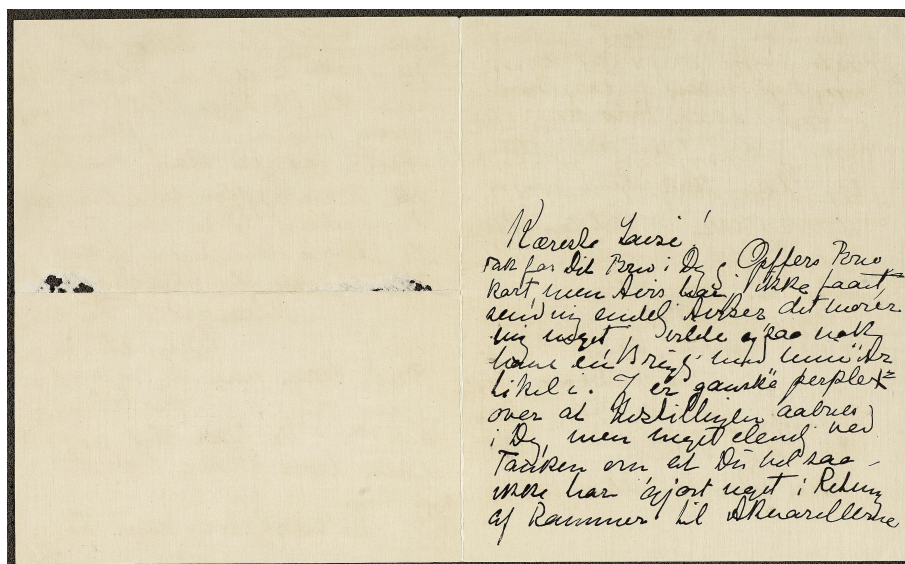 Kæreste Louise!
Tak for Dit Brev i Dg. Opffers Brev
kort, men Avis har j ikke faaet,
send mig endel Aviser det morer
mig meget, vilde ogsaa nok
have en med min Ar
tikel i. J er ganske perplex
over at Udstillingen aabnes
i Dg, men meget elend ved
Tanken om at Du vel saa
ikke har gjort noget i Retning
af Rammer til Akvarellerne